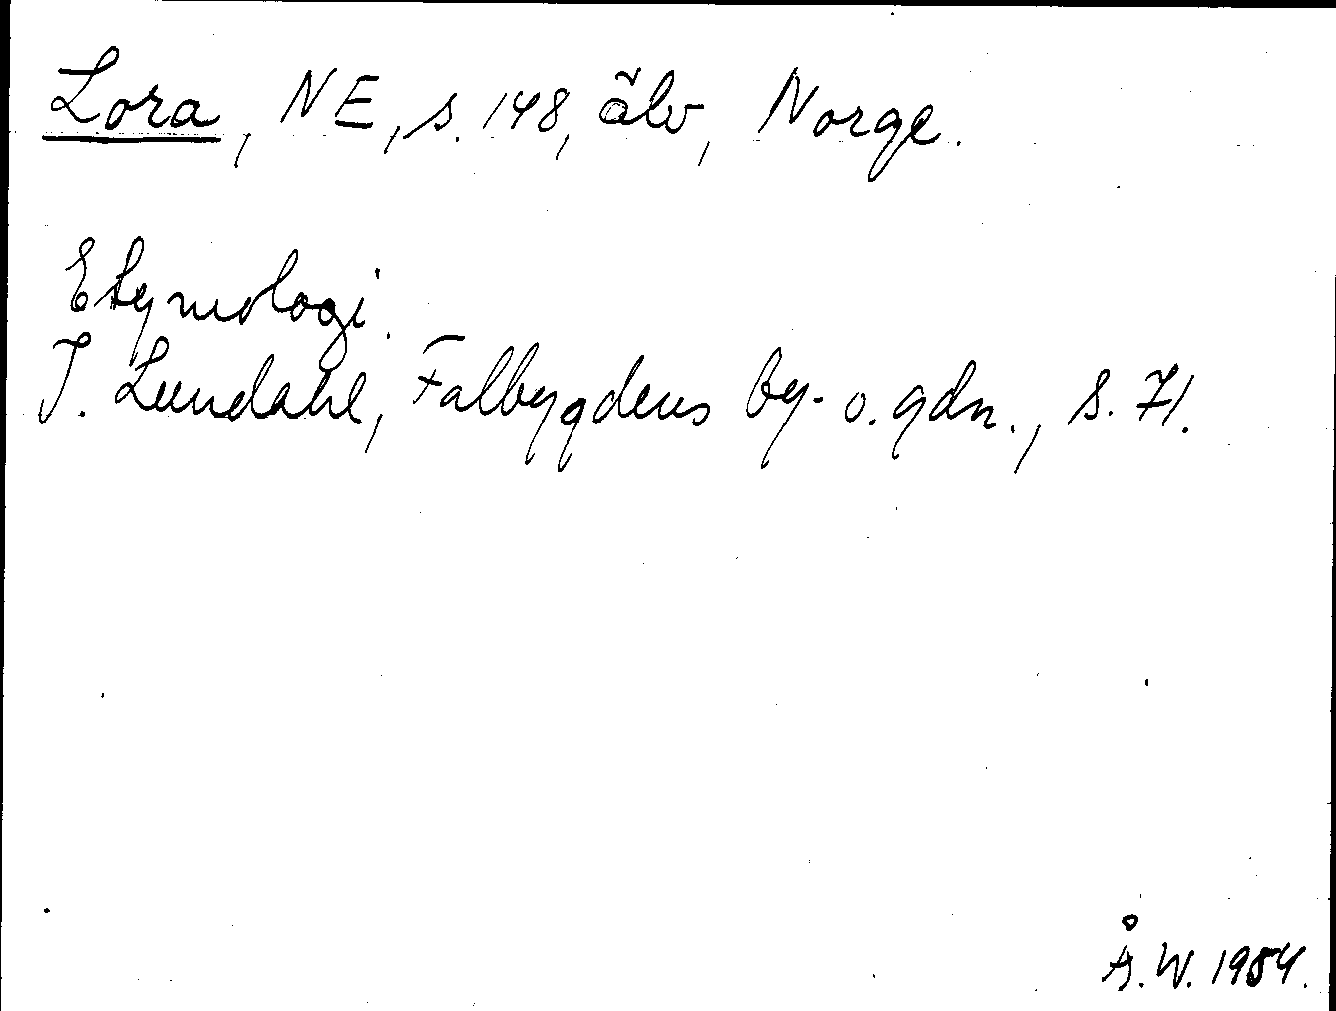 Lora, NE, s. 148, älv, Norge.
Etymologi.
I. Lundahl, Falbygdens by- o. gdn., s. 71.
Å.W. 1984.